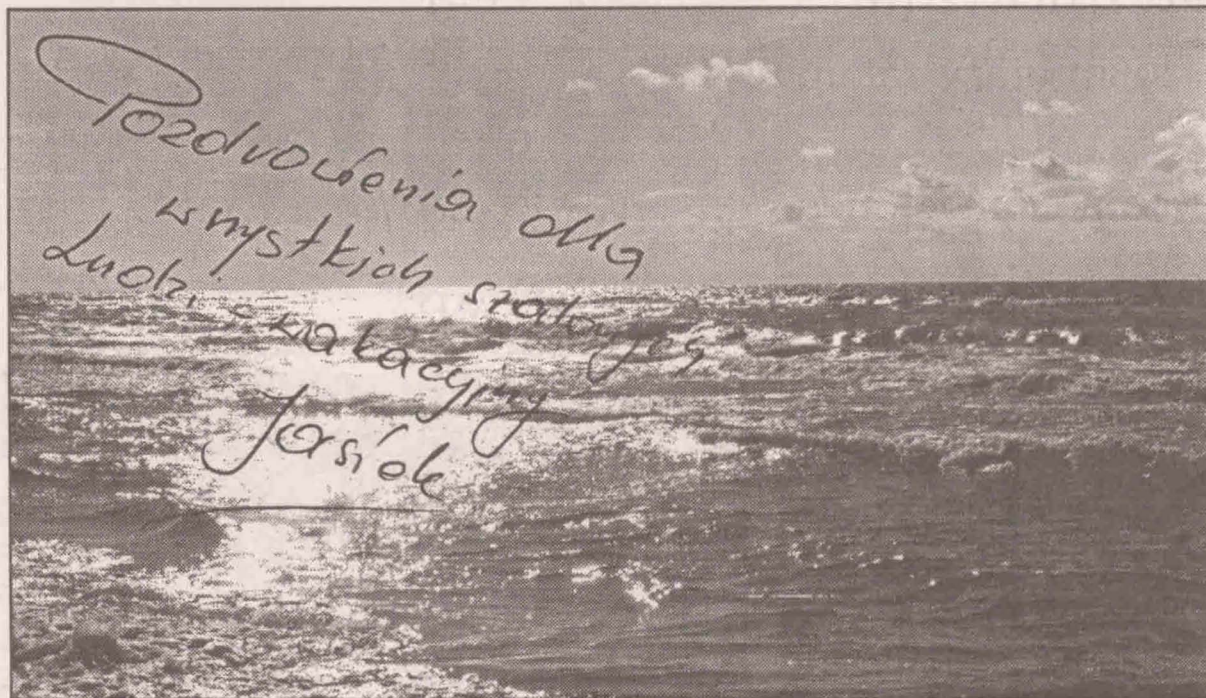 Pozdrowienia dla
wszystkich szalonych
Ludzi - wakacyjny
Jasiek